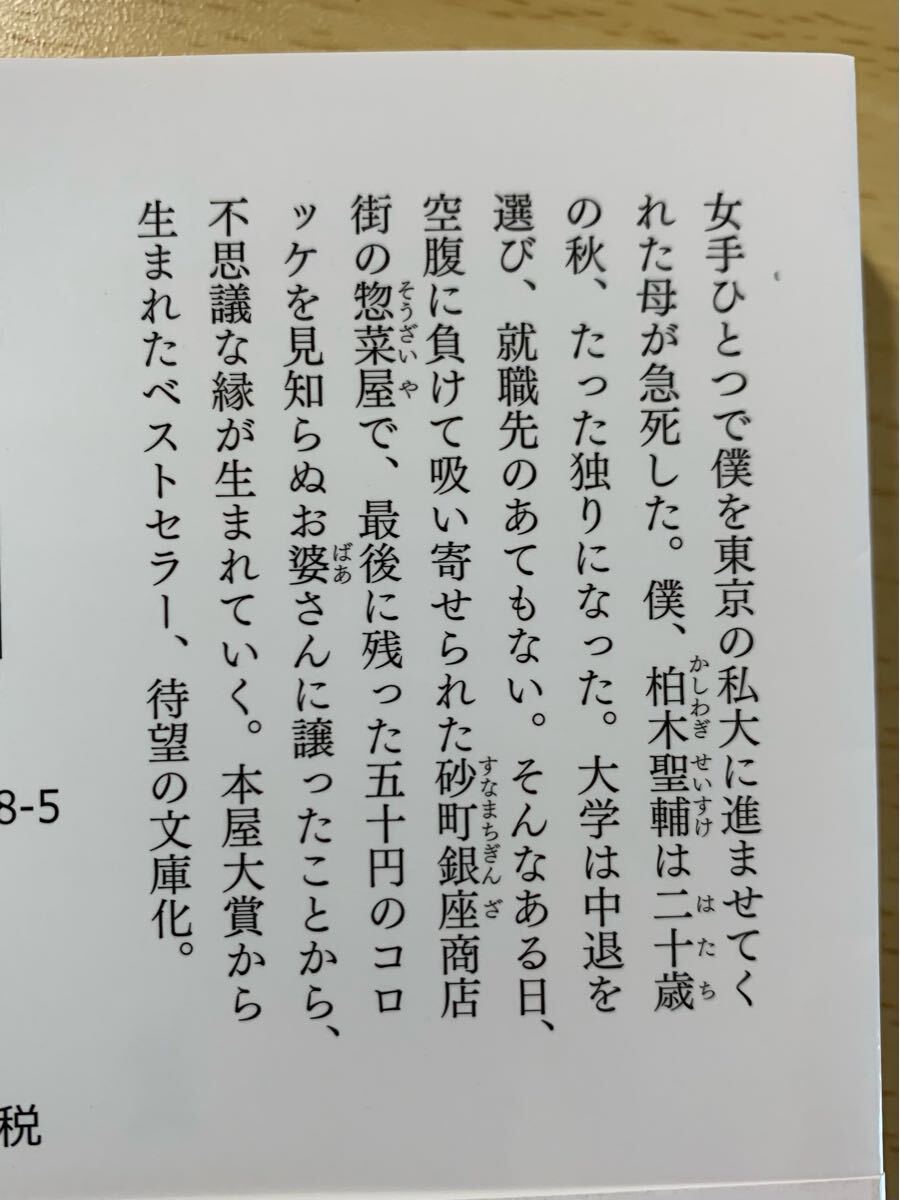 女手ひとつで僕を東京の私大に進ませてく
れた母が急死した。僕、柏木聖輔は二十歳
かしわぎ せいすけ はたち
の秋、たった独りになった。大学は中退を
選び、就職先のあてもない。そんなある日、
空腹に負けて吸い寄せられた砂町銀座商店
すなまちぎんざ
街の惣菜屋で、最後に残った五十円のコロ
そうざいや
ッケを見知らぬお婆さんに譲ったことから、
ばあ
不思議な縁が生まれていく。本屋大賞から
生まれたベストセラー、待望の文庫化。
8-5
税